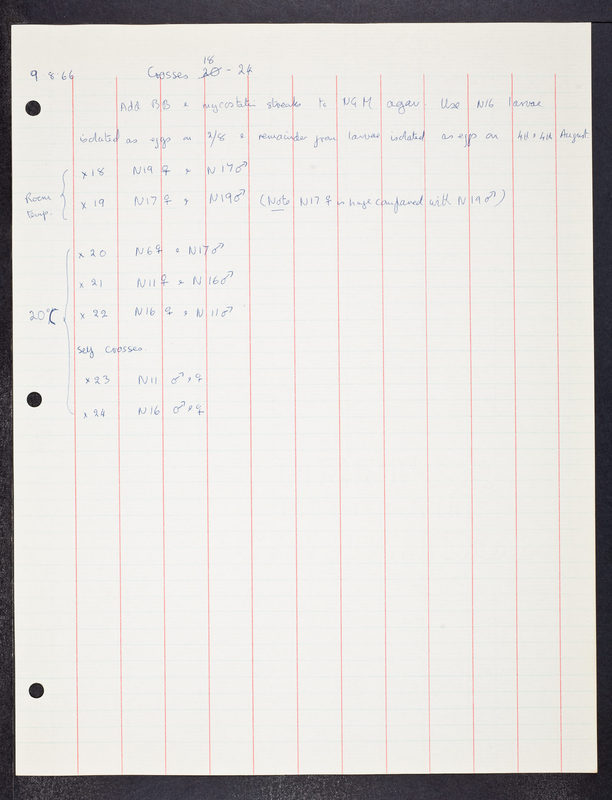 9.8.66 Crosses 18 - 24
Add BB & mycostatin streaks to NGM agar. Use N16 larvae
isolated as eggs on 2/8 & remainder from larvae isolated as eggs on 4th August.
Room temp.
x18 N19 ♀ x N17 ♂
x 19 N17 ♀ x N19♂ (Note N17 ♀ is huge compared with N19 ♂)
20°C
x 20 N6♀ x N17♂
x 21 N11♀ x N16♂
x 22 N16 ♀ x N11♂
Self crosses.
x 23 N11 ♂ x ♀
x 24 N16 ♂ x ♀